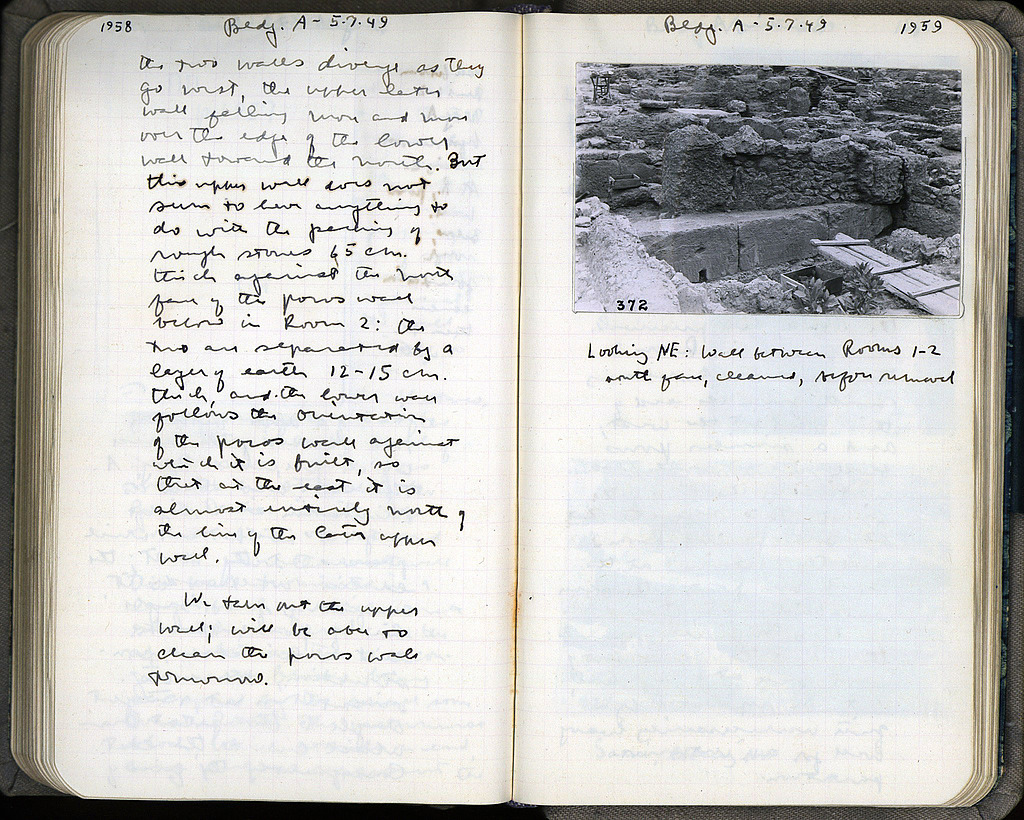 1958
Bldg. A - 5.7.49
the two walls diverge as they
go west, the upper later
wall falling more and more
over the edge of the lower
wall toward the north. But
this upper wall does not
seem to have anything to
do with the packing of
rough stones 65 cm.
thick against the north
face of the poros wall
below in Room 2: the
two are separated by a
layer of earth 12-15 cm.
thick, and the lower wall
follows the orientation
of the poros wall against
which it is built, so
that at the east it is
almost entirely north of
the line of the later upper
wall.
We take out the upper
wall; will be able to
clean the poros wall
tomorrow.
Bldg. A - 5.7.49
1959
372
Looking NE: Wall between Rooms 1-2
south face, cleaned, before removal